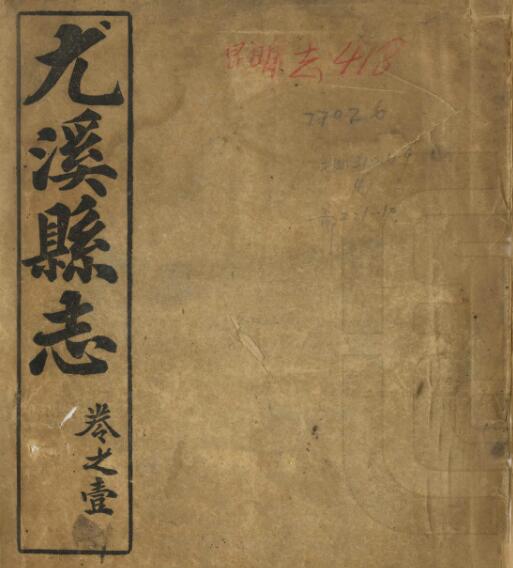 尤溪縣志
卷之壹
去418
77026